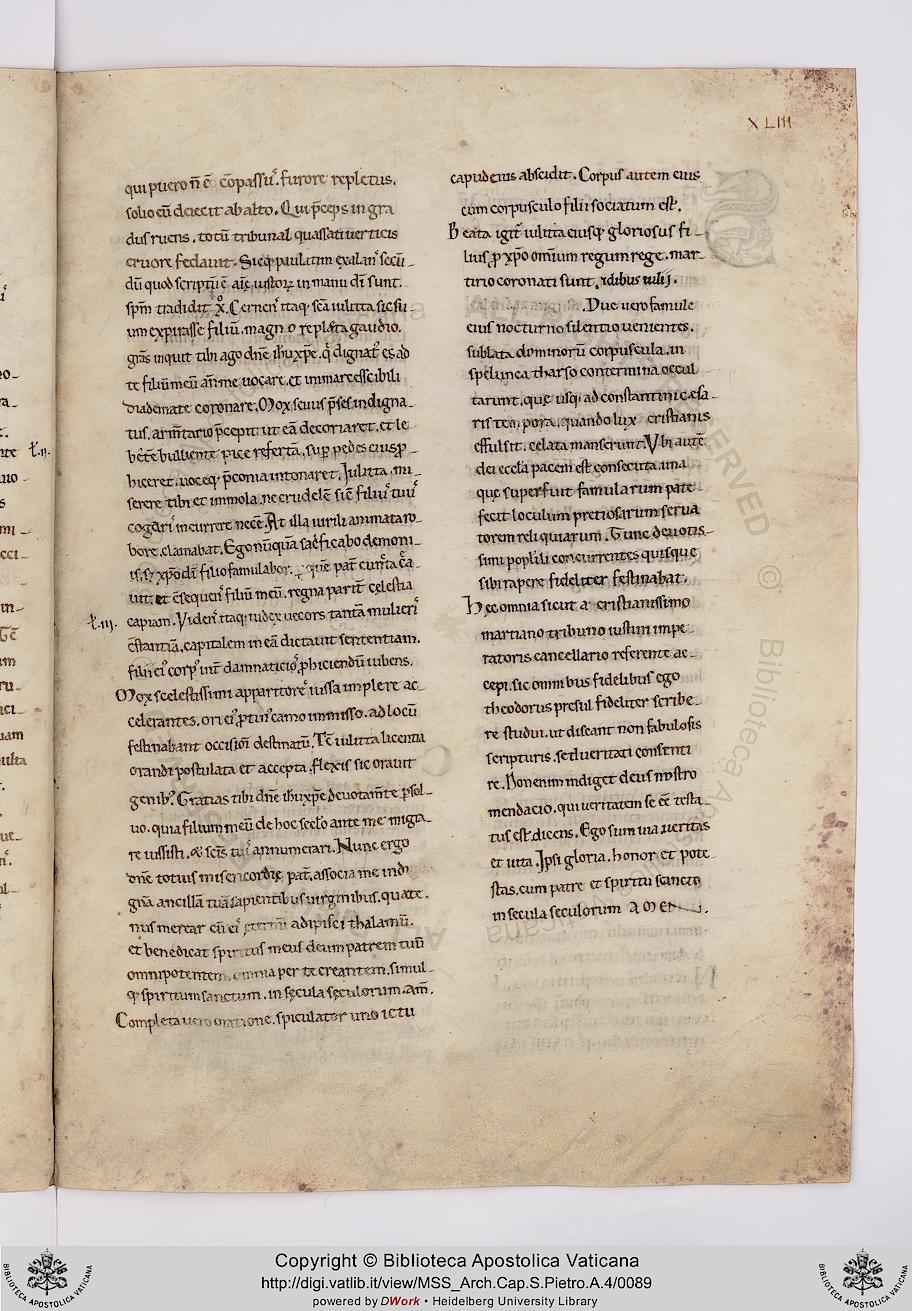 XLIII
qui puero n̄ ē cōpassuˀ. furore repletus.
solio eū deiecit ab alto. Qui p̄ceps in gra
dus ruens. totū tribunal quassati uerticis
cruore fedauit. Sicq; paulatim exalanˀ secū-
dū quod scriptū ē aīę iustoꝝ in manu dī sunt.
sp̄m tradidit x͞o. Cernenˀ itaq; sc̄a iulitta sic su-
um expirasse filiū. magno repleta gaudio.
grās inquit tibi ago dn̄e ih̄uxp̄e. q̄ dignatˀ es ad
te filiū meū an̄ me uocare. et inmarcescibili
diademate coronare. Mox seuus p̄ses indigna-
tus. armtario p̄cepit ut eā decoriaret. et le
bete bulliente pice referta. sup̄ pedes eius p̱-
hiceret. uoceq; p̄conia intonaret. Iulitta. mi-
serere tibi et immola. ne crudelē sic̄ filiuˀ tuuˀ
cogarˀ incurrere necē. At illa uirili animata ro-
bore. clamabat. Ego nūquā sac̄ficabo demoni-
is. sꝫ xp̄o dī filio famulabor. p̱ quē pat̄ cuncta c̄a
uit. et c̄sequenˀ filiū meū. regna parit̄ celestia
capiam. Videnˀ itaq; iudex uecors tantā mulierˀ
c̄stantiā. capitalem in eā dictauit sententiam.
filii eiˀ corpˀ int̄ damnaticioˀ p̱hiciendū iubens.
Mox scelestissimi apparitoreˀ iussa implere ac-
celerantes. ori eiˀ p̱tinˀ camo immisso. ad locū
festinabant occisiōi destinatū. Tc̄ iulitta licentia
orandi postulata et accepta. flexis sic orauit
genibˀ. Gratias tibi dn̄e ih̄uxp̄e deuotam̄te p̱sol-
uo. quia filium meū de hoc sec̄lo ante me migra-
re iussisti. & sc̄is tuiˀ annumerari. Nunc ergo
dn̄e totius misericordię pat̄. associa me indi
gnā ancillā tuā sapientibus uirginibus. quate-
nus merear cū eiˀ ęternū adipisci thalamū.
et benedicat spiritus meus deum patrem tuū
omnipotentem. omnia per te creantem. simul-
q; spiritum sanctum. in sęcula sęculorum. am̄.
Completa uero oratione. speculator uno ictu
ł.ii.
ł.iii.
caput eius abscidit. Corpus autem eius
cum corpusculo filii sociatum est.
Beata igit̄ iulitta eiusq; gloriosus fi-
lius p̱ xp̄o omnium regum rege. mar-
tirio coronati sunt. idibus iulij.
Due uero famule
eius nocturno silentio uenientes.
sublata dominorū corpuscula. in
spelunca tharso contermina occul
tarunt. quę usq; ad constantini cęsa-
ris tempora. quando lux cristianis
effulsit. celata manserunt. Vbi autē
dei ecclesia pacem est consecuta. una
quę superfuit famularum pate
fecit loculum pretiosarum serua
torem reliquiarum. Tunc deuotis-
simi populi concurrentes quisque
sibi rapere fideliter festinabat.
Hęc omnia sicut a cristianissimo
martiano tribuno iustini impe
ratoris cancellario referente ac-
cepi. sic omnibus fidelibus ego
theodorus presul fideliter scribe-
re studui. ut discant non fabulosis
scripturis. sed ueritati consenti
re. Non enim indiget deus nostro
mendacio. qui ueritatem se eē testa-
tus est. dicens. Ego sum uia ueritas
et uita. Ipsi gloria. honor et pote-
stas. cum patre et spiritu sancto
in secula seculorum AMEN.
Copyright © Biblioteca Apostolica Vaticana
http://digi.vatlib.it/view/MSS_Arch.Cap.S.Pietro.A.4/0089
powered by DWork • Heidelberg University Library